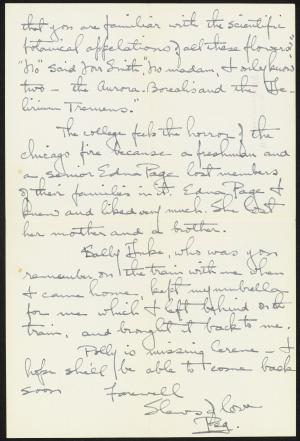 that you are familiar with the scientific
botanical appelations of all these flowers"
"No" said Joe Smith, "No madam, I only know
two — the Aurora Borealis and the De-
lirium Tremens."
The college feels the horror of the
chicago fire because a freshman and
a senior Edna Page lost members
of their families in it. Edna Page I
knew and liked very much. She lost
her mother and a brother.
Sally, who was you
remember on the train with me when
I came home, kept my umbrella
for me which I left behind on the
train, and brought it back to me.
Polly is missing Cerene — I
hope she'll be able to come back
soon Farewell
Slews of love
Peg.